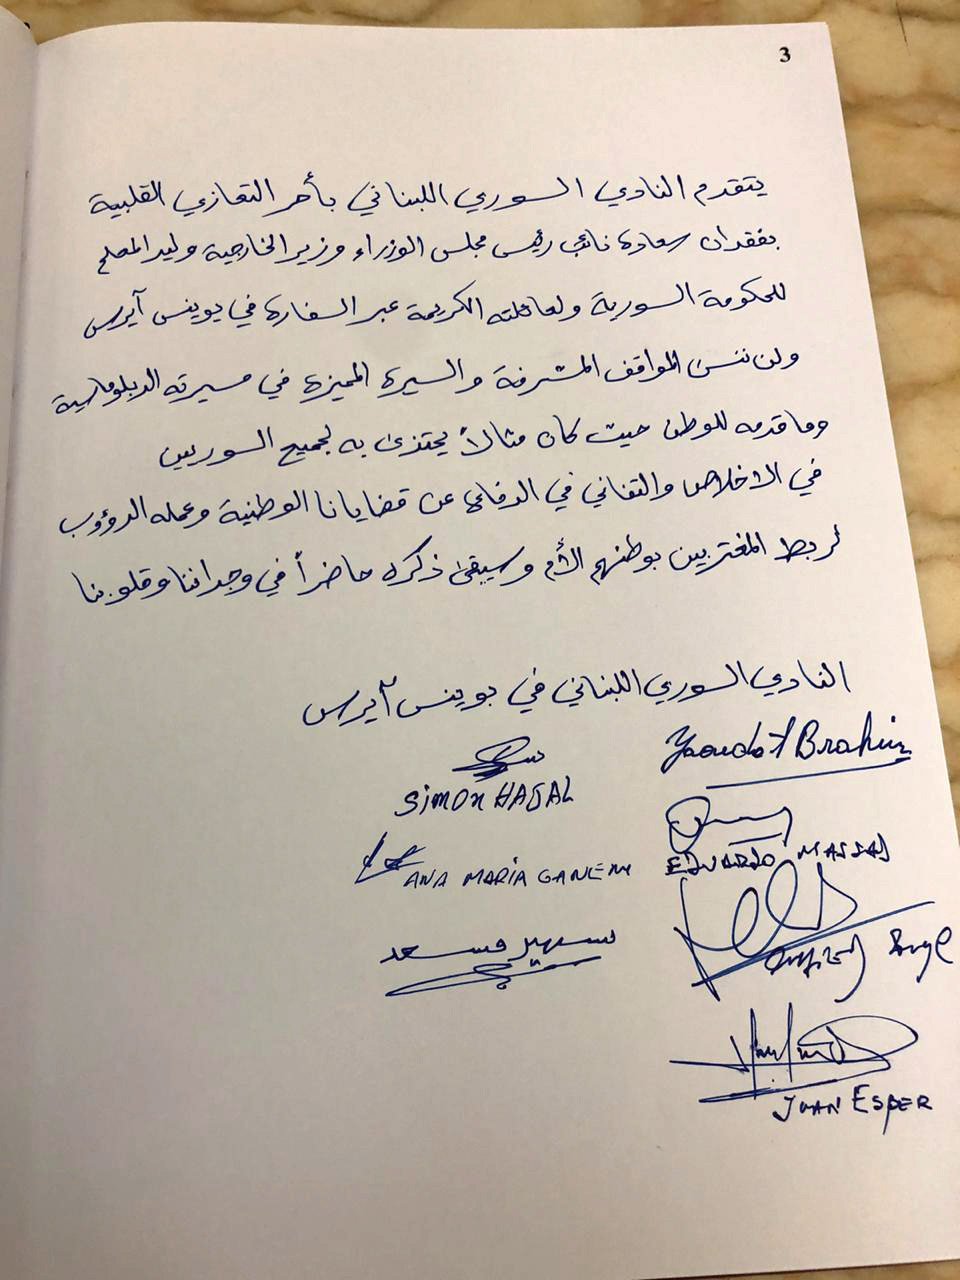 3
يتقدم النادي السوري اللبناني بأحر التعازي القلبية
بفقدان سعادة نائب رئيس مجلس الوزراء وزير الخارجية وليد المعلم
للحكومة السورية ولعائلته الكريمة عبر السفارة في بوينس آيرس
ولن ننسى المواقف المشرفة والسيرة المميزة في مسيرته الدبلوماسية
وما قدمه للوطن حيث كان مثالاً يحتذى به لجميع السوريين
في الاخلاص والتفاني في الدفاع عن قضايانا الوطنية وعمله الدؤوب
لربط المغتربين بوطنهم الأم وسيبقى ذكره حاضراً في وجداننا وقلوبنا
النادي السوري اللبناني في بوينس آيرس
Yaoudat Brahim
SIMON HAJAL
EDUARDO MASSAD
ANA MARIA GANEM
سهير مسعد
JUAN ESPER